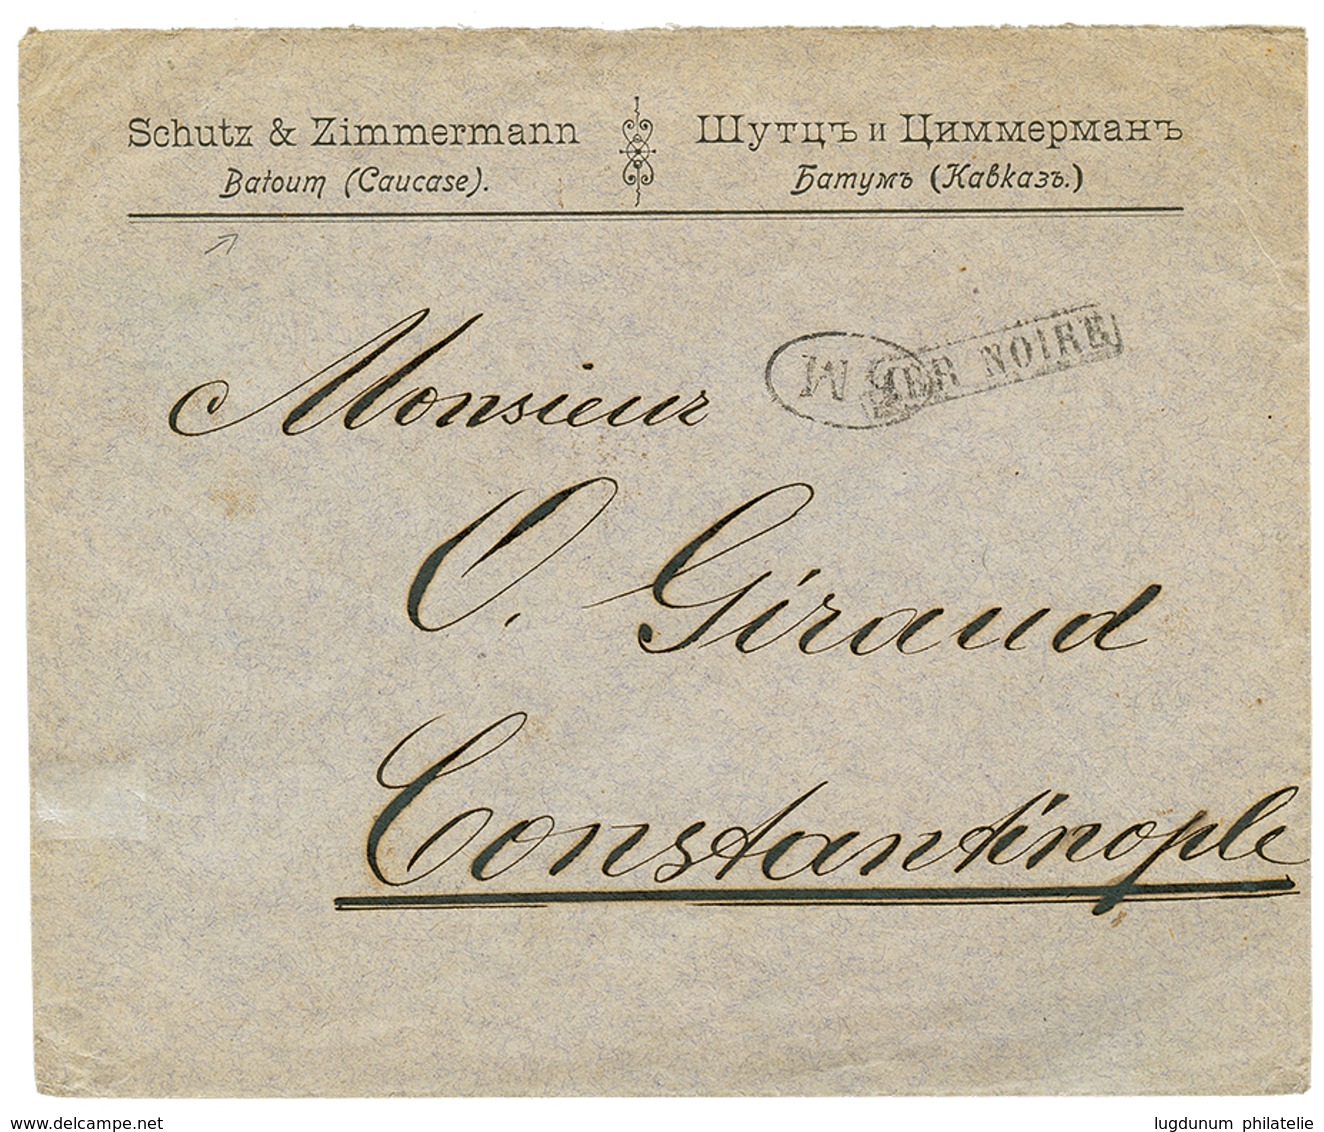 Schutz & Zimmermann
Batoum (Caucase).
Шутцъ и Циммерманъ
Батумъ (Кавказъ.)
MER NOIRE
Monsieur
O. Giraud
Constantinople
www.delcampe.net
lugdunum philatelie